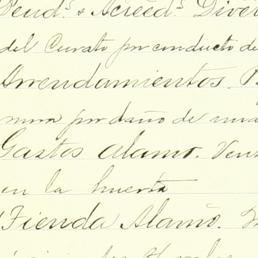 Deud.s & Acreed.s Diver
del Curato por conducto de
Arrendamientos.
mura por daño de una
Gastos Alamo. Ven
en la huerta
Tienda Alamo.